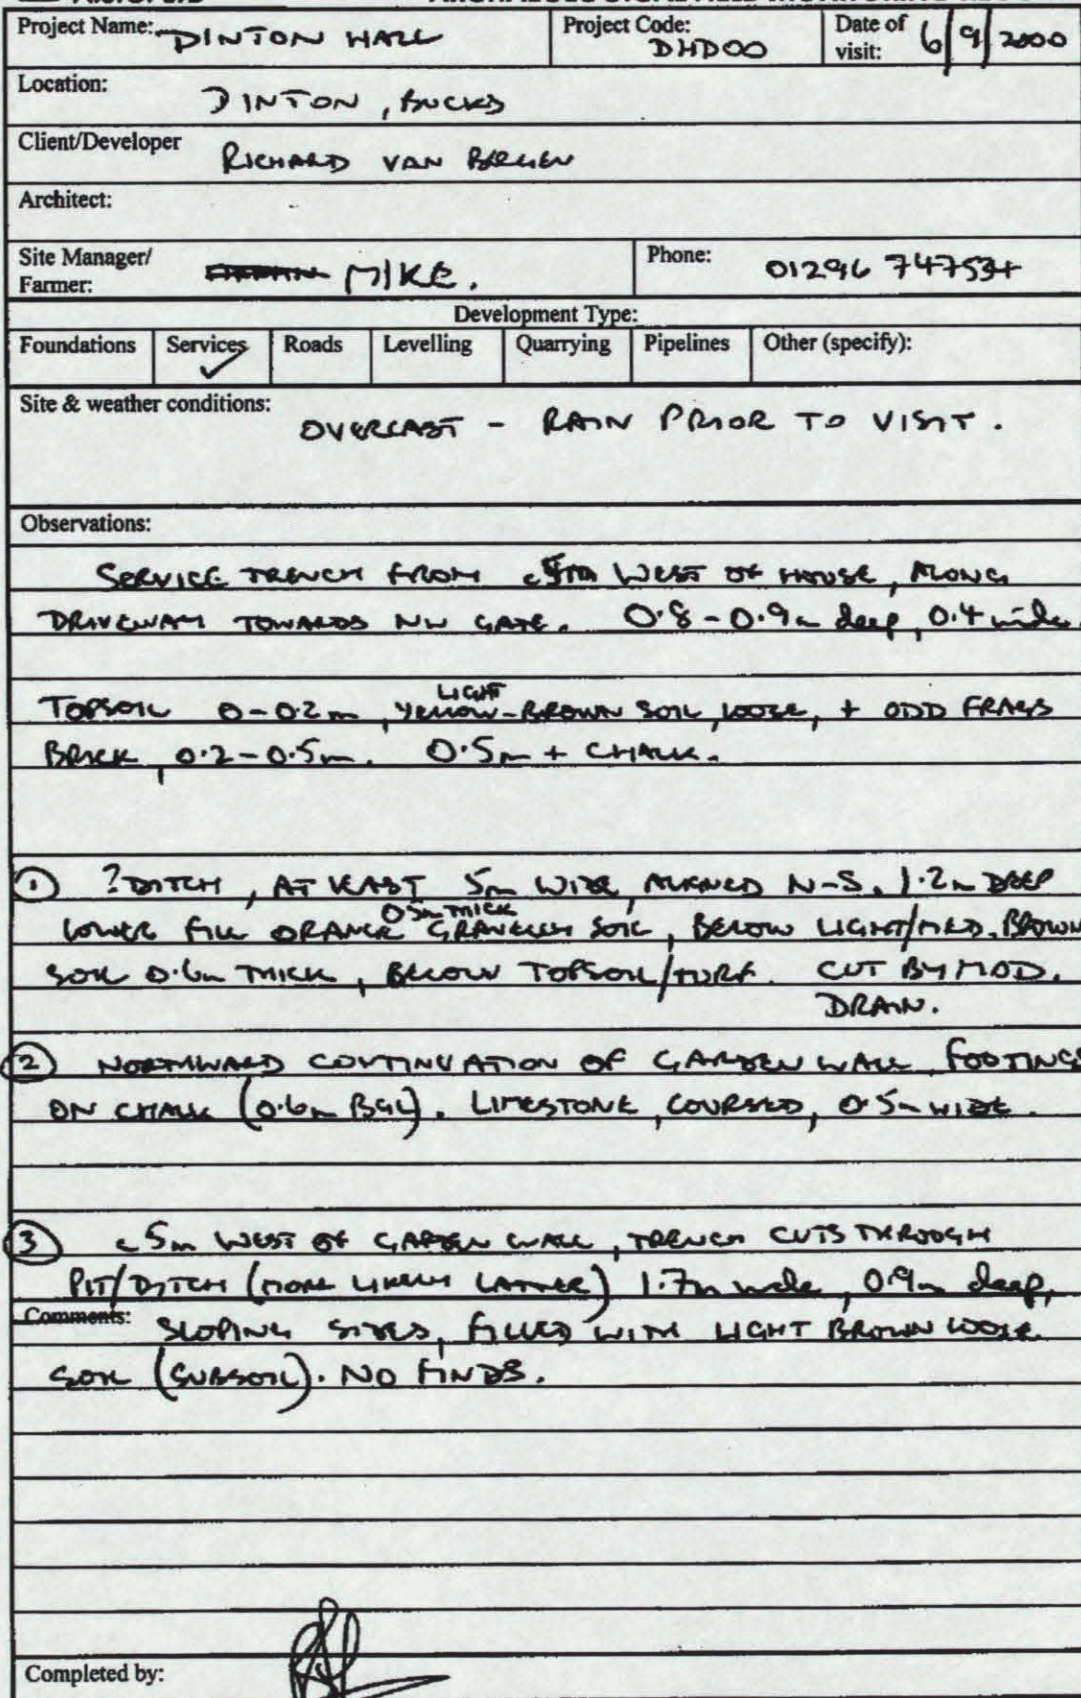 Project Name: DINTON HALL Project Code: DHD00 Date of visit: 6/9/2000
Location: DINTON, BUCKS
Client/Developer RICHARD VAN BERGEN
Architect:
Site Manager/ Farmer: MIKE. Phone: 01296 747537
Development Type:
Foundations Services ✓ Roads Levelling Quarrying Pipelines Other (specify):
Site & weather conditions: OVERCAST - RAIN PRIOR TO VISIT.
Observations:
SERVICE TRENCH FROM c5m WEST OF HOUSE, ALONG
DRIVEWAY TOWARDS NW GATE. 0.8-0.9m deep, 0.4 wide.
TOPSOIL 0-0.2m, LIGHT YELLOW-BROWN SOIL, LOOSE, + ODD FRAGS
BRICK, 0.2-0.5m. 0.5m + CHALK.
① ?DITCH, AT LEAST 5m WIDE, ALIGNED N-S. 1.2m DEEP
LOWER FILL ORANGE 0.5m THICK GRAVELLY SOIL, BELOW LIGHT/MED. BROWN
SOIL 0.6m THICK, BELOW TOPSOIL/TURF. CUT BY MOD.
DRAIN.
② NORTHWARD CONTINUATION OF GARDEN WALL, FOOTINGS
ON CHALK (0.6m BGL). LIMESTONE, COURSED, 0.5m WIDE.
③ c5m WEST OF GARDEN WALL, TRENCH CUTS THROUGH
PIT/DITCH (MORE LIKELY LATTER) 1.7m wide, 0.9m deep,
Comments: SLOPING SIDES, FILLED WITH LIGHT BROWN LOOSE
SOIL (SUBSOIL). NO FINDS.
Completed by: